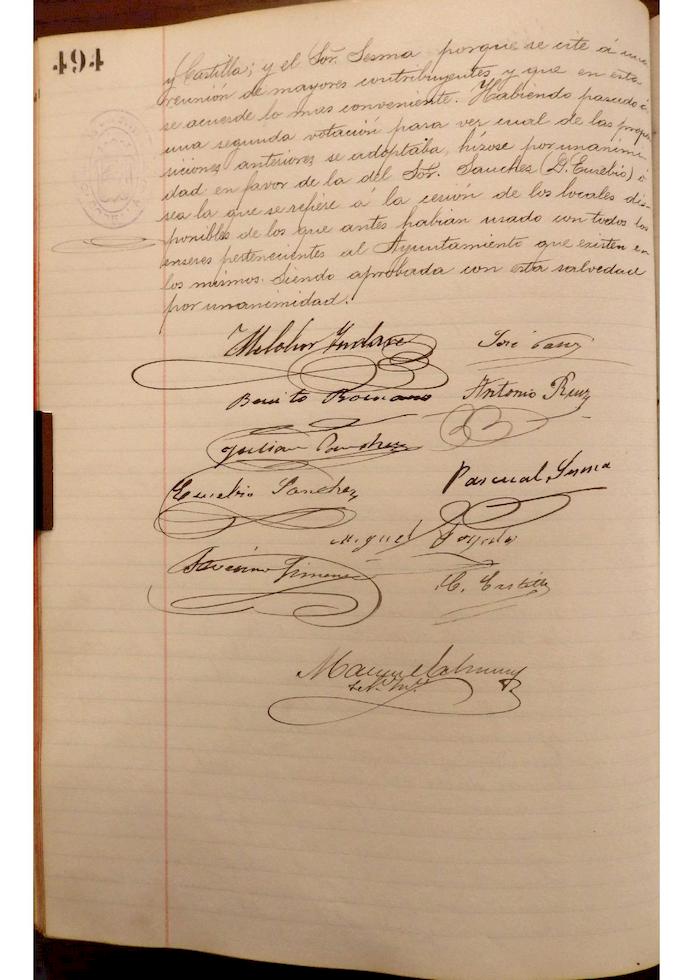 494
y Castilla; y el Sor. Sesma porque se cite á una
reunión de mayores contribuyentes y que en esta
se acuerde lo mas conveniente. Habiendo pasado á
una segunda votación para ver cual de las propo
siciones anteriores se adoptaba, hízose por unanimi
dad en favor de la del Sor. Sanchez (D. Eusebio) ó
sea la que se refiere á la cesión de los locales dis-
ponibles de los que antes habían usado con todos los
enseres pertenecientes al Ayuntamiento que existen en
los mismos. Siendo aprobada con esta salvedad
por unanimidad.
Melchor José
Benito Romano Antonio Ruiz
Julian Sanchez
Eusebio Sanchez Pascual Sesma
Miguel
Saturnino Jimenez
C. Castilla
Manuel